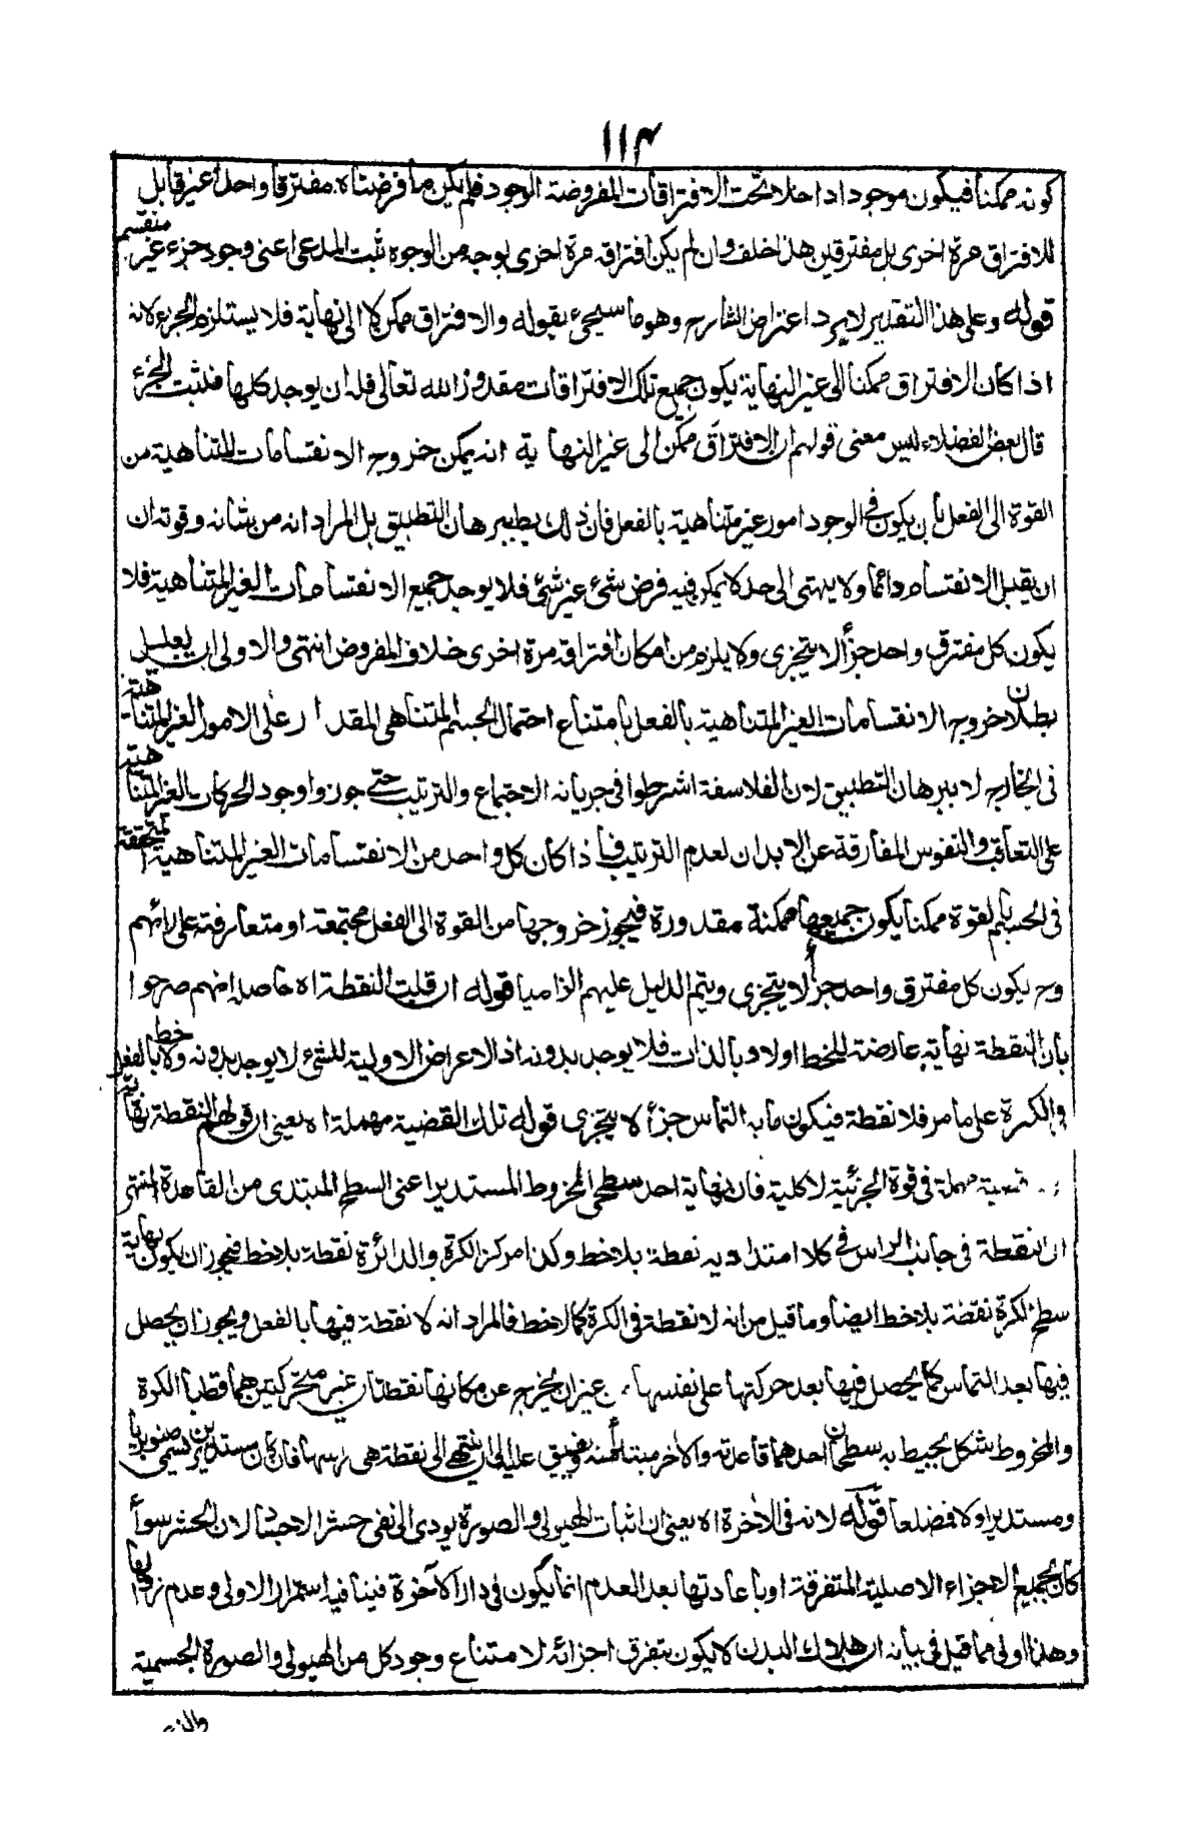 ١١٤
كونه ممكنا فيكون موجودا داخلا تحت الافتراقات المفروضة الوجود فلم يكن ما فرضناه مفترقا واحدا غير قابل
للافتراق مرة اخرى بل مفترقين هذا خلف وان لم يكن افتراقه مرة اخرى بوجه من الوجوه ثبت المدعى اعنى وجود جزء غير منقسم
قوله وعلى هذا التقدير لا يرد اعتراض الشارح وهو ما سيجيء بقوله والافتراق ممكن لا الى نهاية فلا يستلزم الجزء لانه
اذا كان الافتراق ممكنا الى غير النهاية يكون جميع تلك الافتراقات مقدور الله تعالى فله ان يوجد كلها فثبت الجزء
قال بعض الفضلاء ليس معنى قولهم ان الافتراق ممكن الى غير النهاية انه يمكن خروج الانقسامات المتناهية من
القوة الى الفعل بأن يكون في الوجود امور غير متناهية بالفعل فان ذلك يبطله برهان التطبيق بل المراد انه من شانه وقوته ان
ان يقبل الانقسام دائما ولا ينتهى الى حد لا يمكن فيه فرض شئ غير شئ فلا يوجد جميع الانقسامات الغير المتناهية فلا
يكون كل مفترق واحد جزأ لا يتجزى ولا يلزم من امكان افتراقه مرة اخرى خلاف المفروض انتهى والاولى ان يعلل
بطلان خروج الانقسامات الغير المتناهية بالفعل بامتناع احتمال الجسم المتناهى المقدار على الامور الغير المتناهية
فى الخارج لا ببرهان التطبيق لان الفلاسفة اشترطوا فى جريانه الاجتماع والترتيب حتى جوزوا وجود الحركات الغير المتناهية
على التعاقب والنفوس المفارقة عن الابدان لعدم الترتيب فاذا كان كل واحد من الانقسامات الغير المتناهية المتحققة
فى الجسم بالقوة ممكنا يكون جميعها ممكنة مقدورة فيجوز خروجها من القوة الى الفعل مجتمعة او متعارفة على رائهم
وح يكون كل مفترق واحد جزأ لا يتجزى ويتم الدليل عليهم الزاميا قوله ان قلت النقطة اه حاصله انهم صرحوا
بأن النقطة نهاية عارضة للخط اولا وبالذات فلا يوجد بدونه اذ الاعراض الاولية للشئ لا يوجد بدونه ولا خط بالفعل
فى الكرة على ما مر فلا نقطة فيكون ما به التماس جزأ لا يتجزى قوله تلك القضية مهملة اه يعنى ان قولهم النقطة نهاية
مهملة فى قوة الجزئية لا كلية فان نهاية احد سطحى المخروط المستدير اعنى السطح المبتدى من القاعدة المنتهى
الى النقطة فى جانب الراس فى كلا امتداديه نقطة بلا خط وكذا مركز الكرة والدائرة نقطة بلا خط فيجوز ان يكون نهاية
سطح الكرة نقطة بلا خط ايضا وما قيل من انه لا نقطة فى الكرة كما لا خط فالمراد انه لا نقطة فيها بالفعل ويجوز ان يحصل
فيها بعد التماس كما يحصل فيها بعد حركتها على نفسها من غير ان يخرج عن مكانها نقطتان غير متحركتين هما قطبا الكرة
والمخروط شكل يحيط به سطحان احدهما قاعدته والآخر مبتدأ منه ويضيق الى ان ينتهى الى نقطة هى رأسها فان كان مستديرين يسمى صنوبريا
ومستديرا والا فمضلعا قوله لانه فى الاخرة اه يعنى ان اثبات الهيولى والصورة يودى الى نفى حشر الاجساد لان الحشر سوأ
كان بجميع الاجزاء الاصلية المتفرقة او باعادتها بعد العدم انما يكون فى دار الآخرة فينافيه استمرار الاولى وعدم زوالها
وهذا اولى مما قيل فى بيانه ان هلاك البدن لا يكون بتفرق اجزائه لامتناع وجود كل من الهيولى والصورة الجسمية